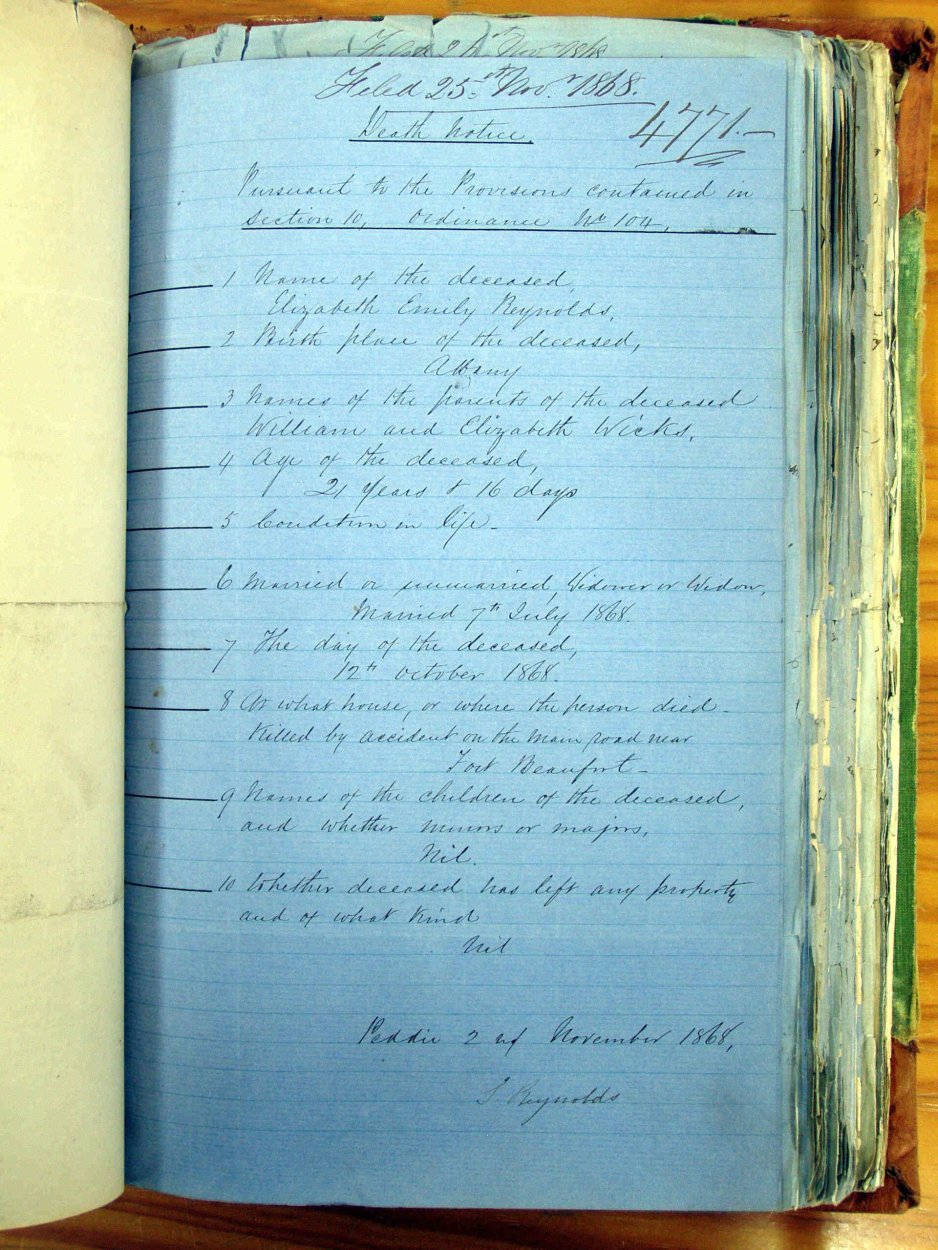 Filed 24th Novr 1868
Filed 25th Novr 1868.
Death Notice.
4771.—
Pursuant to the Provisions contained in
section 10, Ordinance No 104,
1 Name of the deceased,
Elizabeth Emily Reynolds,
2 Birth place of the deceased,
Albany
3 Names of the parents of the deceased
William and Elizabeth Wicks,
4 Age of the deceased,
21 Years & 16 days
5 Condition in life -
6 Married or unmarried, Widower or Widow,
Married 7th July 1868.
7 The day of the deceased,
12th October 1868.
8 At what house, or where the person died -
Killed by accident on the main road near
Fort Beaufort -
9 Names of the children of the deceased,
and whether minors or majors,
Nil.
10 Whether deceased has left any property
and of what kind
Nil
Peddie 2nd November 1868,
Reynolds